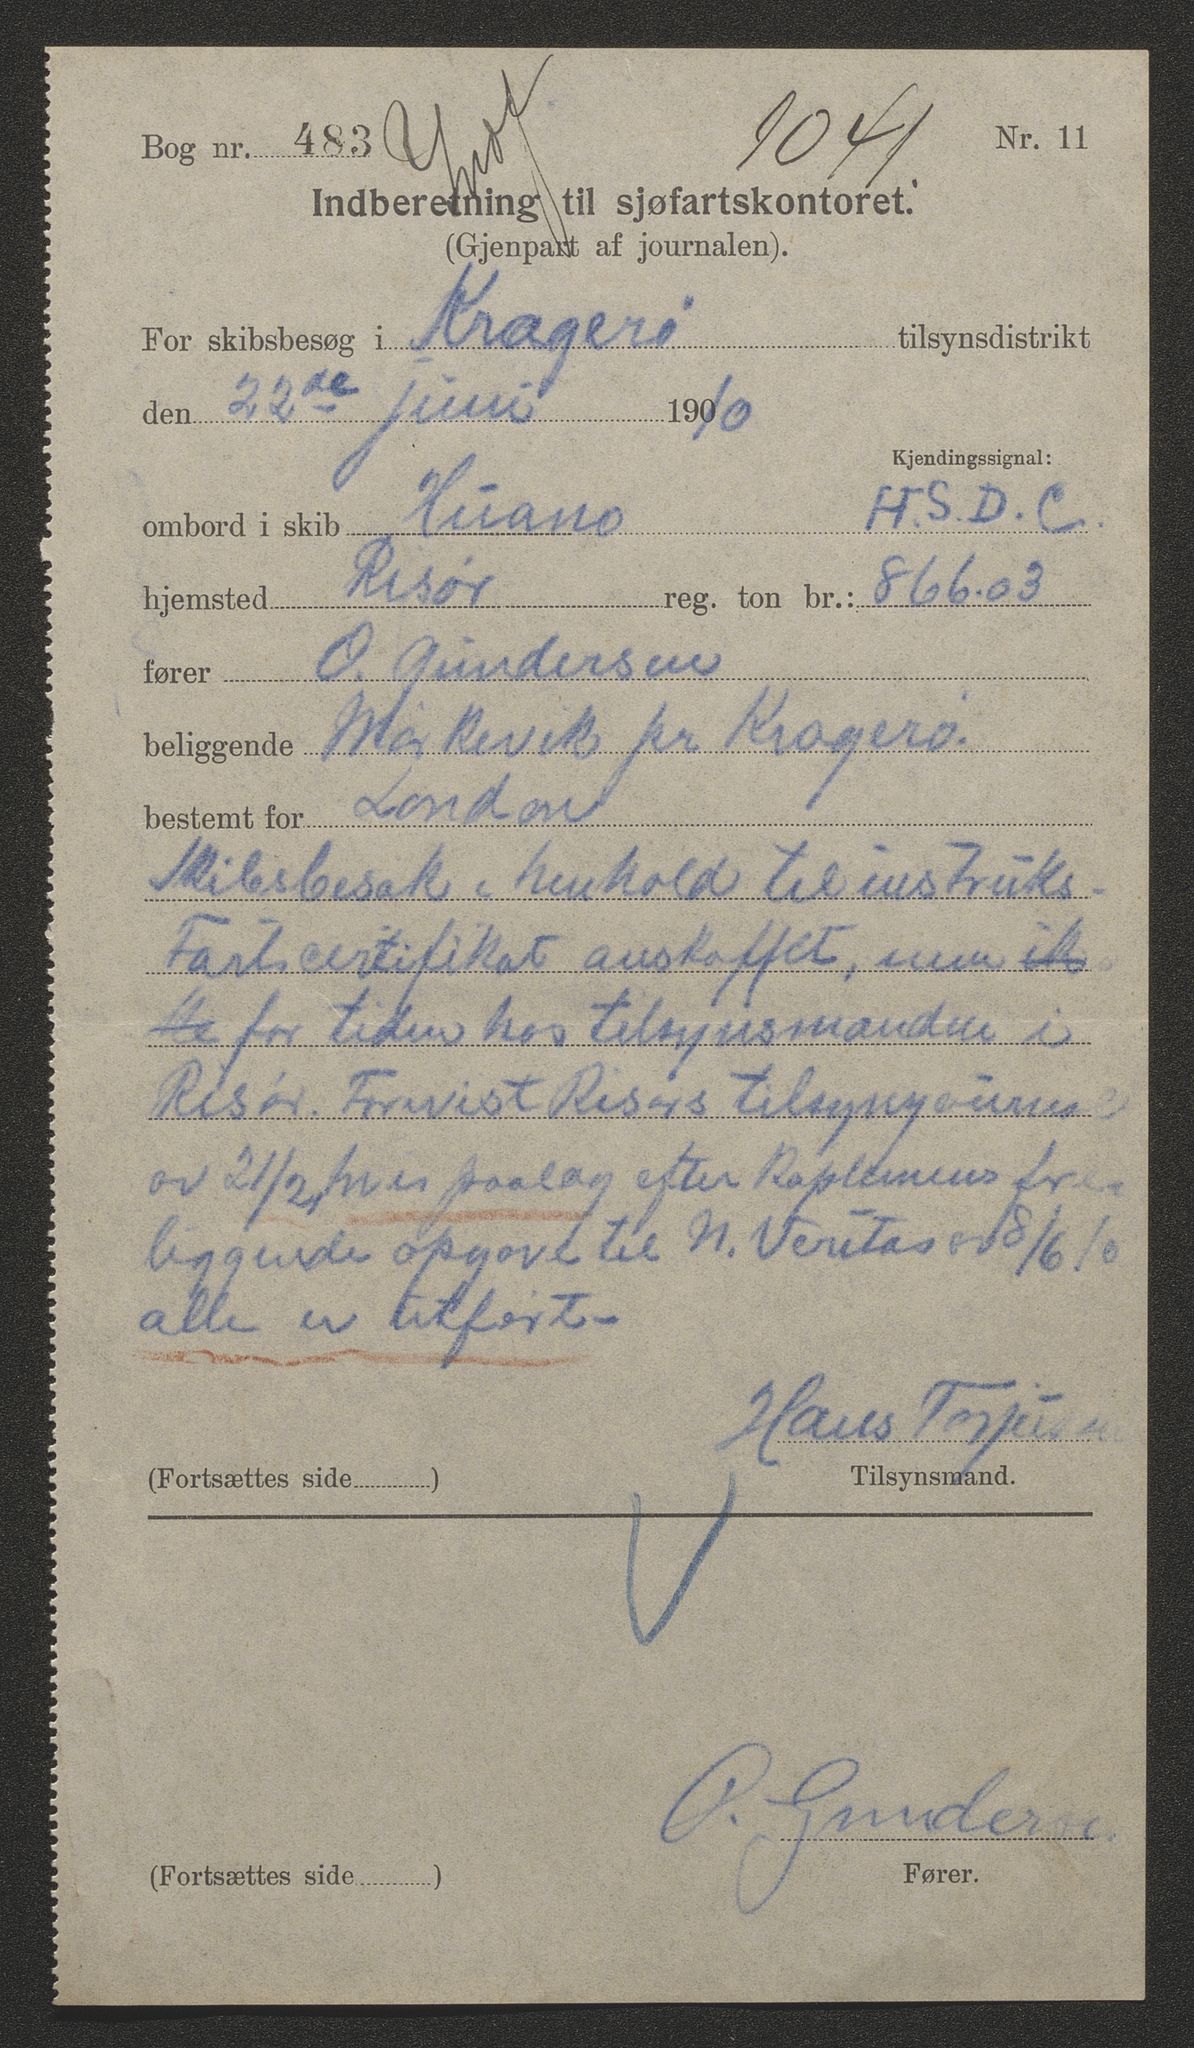 Bog nr. 483 1041 Nr. 11
Indberetning til sjøfartskontoret.
(Gjenpart af journalen).
For skibsbesøg i Kragerø tilsynsdistrikt
den 22de juni 1910
Kjendingssignal:
ombord i skib Huano H.S.D.C.
hjemsted Risør reg. ton br.: 866.03
fører O. Gundersen
beliggende Mørkevik pr Kragerø.
bestemt for London
Skibsbesøk i henhold til instruks-
Fartscertifikat anskaffet, men ik
ke for tiden hos tilsynsmanden i
Risør. Forevist Risørs tilsynsjournal
av 21/2, hvis paalæg efter Kapteinens fore
liggende opgave til N. Veritas av 8/6 10
alle er utført-
Hans
(Fortsættes side ) Tilsynsmand.
O. Gundersen
(Fortsættes side ) Fører.